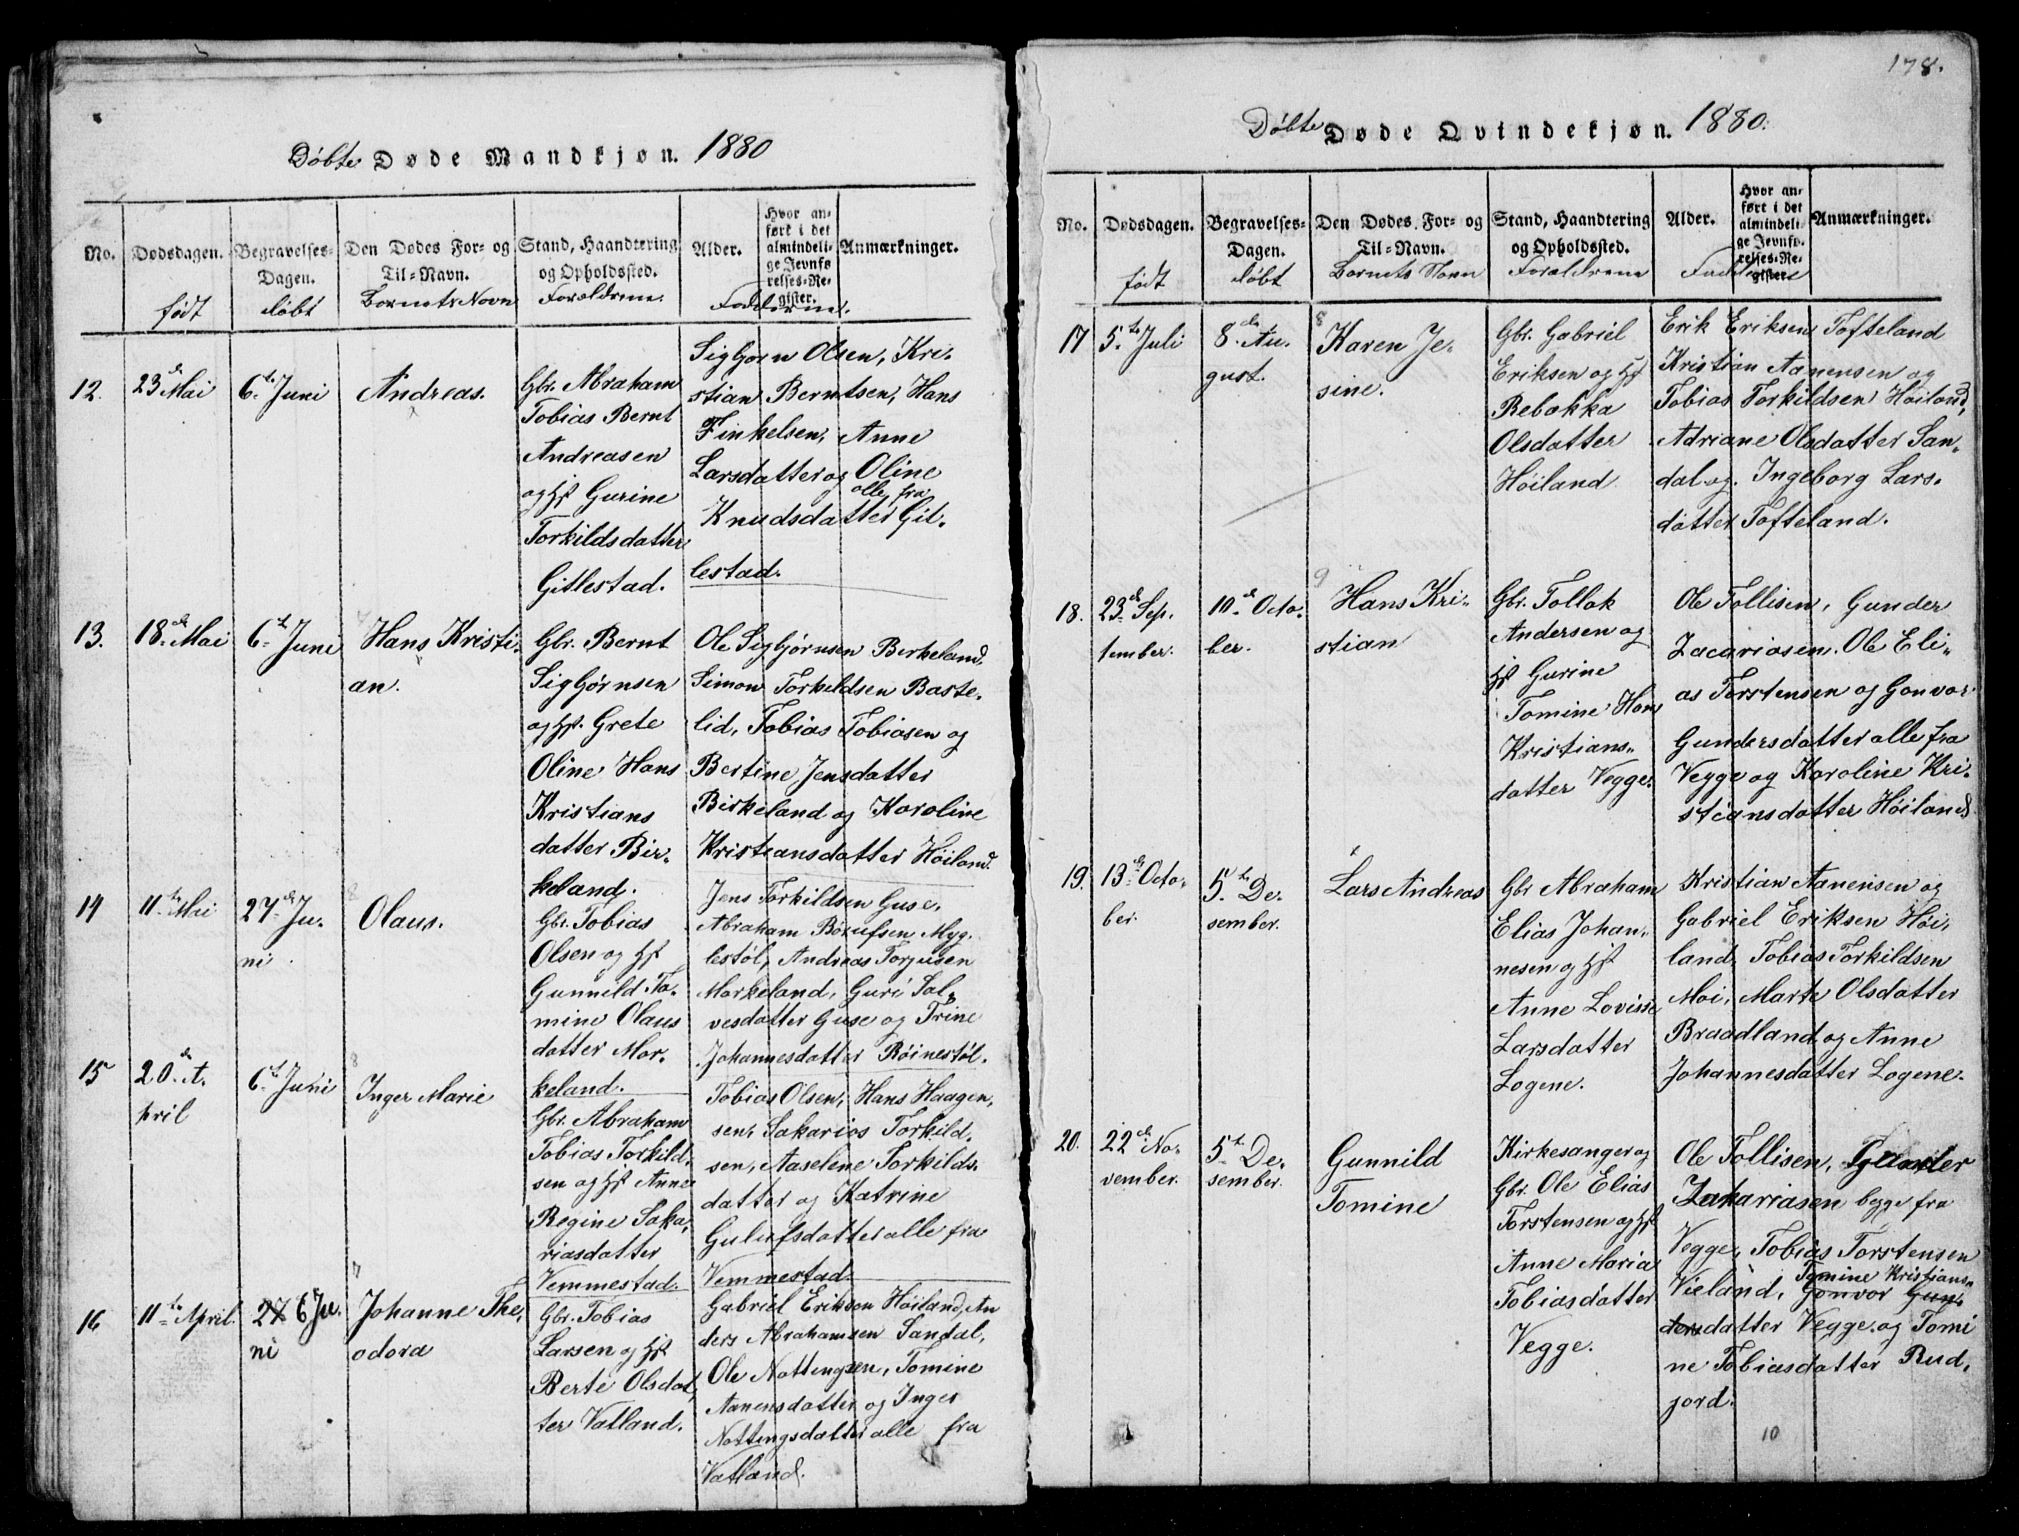 Döbte Døde Mandkjøn. 1880
No.
Dødsdagen.
født
Begravelses-
Dagen.
döbt
Den Dødes For- og
Til-Navn.
Barnets Navn
Stand, Haandtering
og Opholdssted.
Forældrene.
Alder.
Hvor an-
ført i det
almindeli-
ge Jevnfø
relses-Re-
gister.
Fadderne.
Anmærkninger.
12.
23d Mai
6te Juni
Andreas.
Gbr. Abraham
Tobias Bernt
Andreasen
og Hst Gurine
Torkildsdatter
Gitlestad.
Sigbjørn Olsen, Kri-
stian Berntsen, Hans
Finkelsen, Anne
Larsdatter og Oline
alle fra
Knudsdatter Git-
lestad.
13.
18de Mai
6te Juni
Hans Kristi-
an.
Gbr. Bernt
Sigbjørnsen
og Hst. Grete
Oline Hans
Kristians
datter Bir-
keland.
Ole Sigbjørnsen Birkeland.
Simon Torkildsen Baste-
lid, Tobias Tobiasen og
Bertine Jensdatter
Birkeland og Karoline
Kristiansdatter Höiland.
14
11te Mai
27de Ju-
ni.
8
Olaus.
Gbr. Tobias
Olsen og Hst
Gunnild To-
mine Olaus
datter Mor-
keland.
Jens Torkildsen Guse,
Abraham Börufsen Myg-
lestøl, Andreas Torjusen
Morkeland, Guri Sal-
vesdatter Guse og Trine
Johannesdatter Röinestøl.
15
20de A-
pril
6te Juni
8
Inger Marie
Gbr. Abraham
Tobias Torkild-
sen og Hst Anne
Regine Saka-
riasdatter
Vemmestad.
Tobias Olsen, Hans Haagen-
sen, Sakarias Torkild-
sen, Aaselene Torkilds-
datter og Katrine
Gulufsdatter alle fra
Vemmestad.
16
11te April.
27 6 Ju-
ni
7
Johanne The-
odora
Gbr. Tobias
Larsen og Hst
Berte Olsdat-
ter Vatland.
Gabriel Eriksen Höiland, An
ders Abrahamsen Sandal,
Ole Nottengsen, Tomine
Aanensdatter og Inger
Nottingsdatter alle fra
Vatland.
178.
Döbte Døde Qvindekjøn. 1880.
No.
Dødsdagen.
født
Begravelses-
Dagen.
döbt
Den Dødes For- og
Til-Navn.
Barnets Navn
Stand, Haandtering
og Opholdsted.
Forældrene
Alder.
Hvor an-
ført i det
almindeli-
ge Jevnfø-
relses-Re-
gister.
Fadderne
Anmærkninger.
17
5te Juli
8de Au-
gust.
8
Karen Je-
sine.
Gbr. Gabriel
Eriksen og Hst
Rebekka
Olsdatter
Höiland
Erik Eriksen Tofteland
Kristian Aanensen og
Tobias Torkildsen Höiland,
Adriane Olsdatter San-
dal og Ingeborg Lars-
datter Tofteland.
18.
23de Sep-
tember.
10de Octo-
ber.
9
Hans Kri-
stian
Gbr. Tollak
Andersen og
Hst Gurine
Tomine Hans
Kristians-
datter Vegge.
Ole Tollisen, Gunder
Zacariasen. Ole Eli-
as Torstensen og Gonvor
Gundersdatter alle fra
Vegge og Karoline Kri-
stiansdatter Höiland
19.
13de Octo-
ber.
5te De-
sember.
Lars Andreas
Gbr Abraham
Elias Johan-
nesen og Hst
Anne Lovisse
Larsdatter
Logene.
Kristian Aanensen og
Gabriel Eriksen Höi-
land, Tobias Torkildsen
Moi, Marte Olsdatter
Braadland og Anne
Johannesdatter Logene.
20.
22de No-
vember.
5te De-
sember.
Gunnild
Tomine
Kirkesanger og
Gbr. Ole Elias
Torstensen og Hst
Anne Maria
Tobiasdatter
Vegge.
Ole Tollisen, Gunder
Zakariasen begge fra
Vegge, Tobias Torstensen
Tomine Kristians-
Vieland, Gonvor Gun-
dersdatter Vegge og Tomi
ne Tobiasdatter Rud-
jord.
10